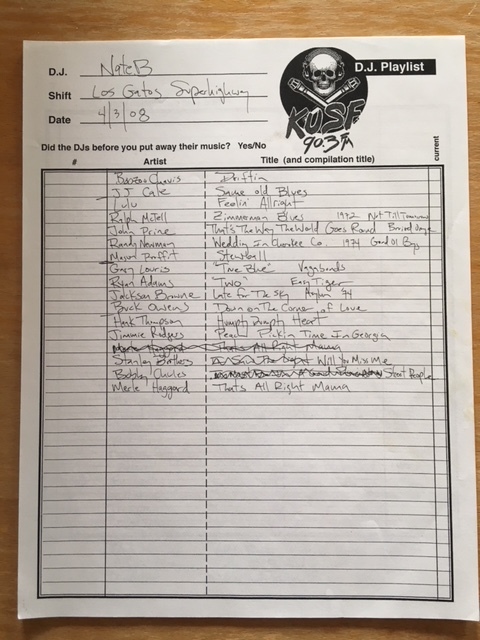 D.J. NateB
D.J. Playlist
Shift Los Gatos Superhighway
KUSF
90.3 FM
Date 4/3/08
Did the DJs before you put away their music? Yes/No
current
# Artist Title (and compilation title)
Boozoo Chavis Driftin
JJ Cale Same old Blues
Lulu Feelin' Allright
Ralph McTell Zimmerman Blues 1972 Not Till Tomorrow
John Prine That's The Way The World Goes Round Bruised Orange
Randy Newman Wedding In Cherokee Co. 1974 Good Ol Boys
Mason Proffit Stewball
Gary Louris "True Blue" Vagabonds
Ryan Adams "TWO" Easy Tiger
Jackson Browne Late for The Sky Asylum 74
Buck Owens Down on The Corner of Love
Hank Thompson Humpty Dumpty Heart
Jimmie Rodgers Peach Pickin Time In Georgia
Merle Haggard Thats All Right Mama
Stanley Brothers Will You Miss Me
Bobby Charles Street People
Merle Haggard Thats All Right Mama